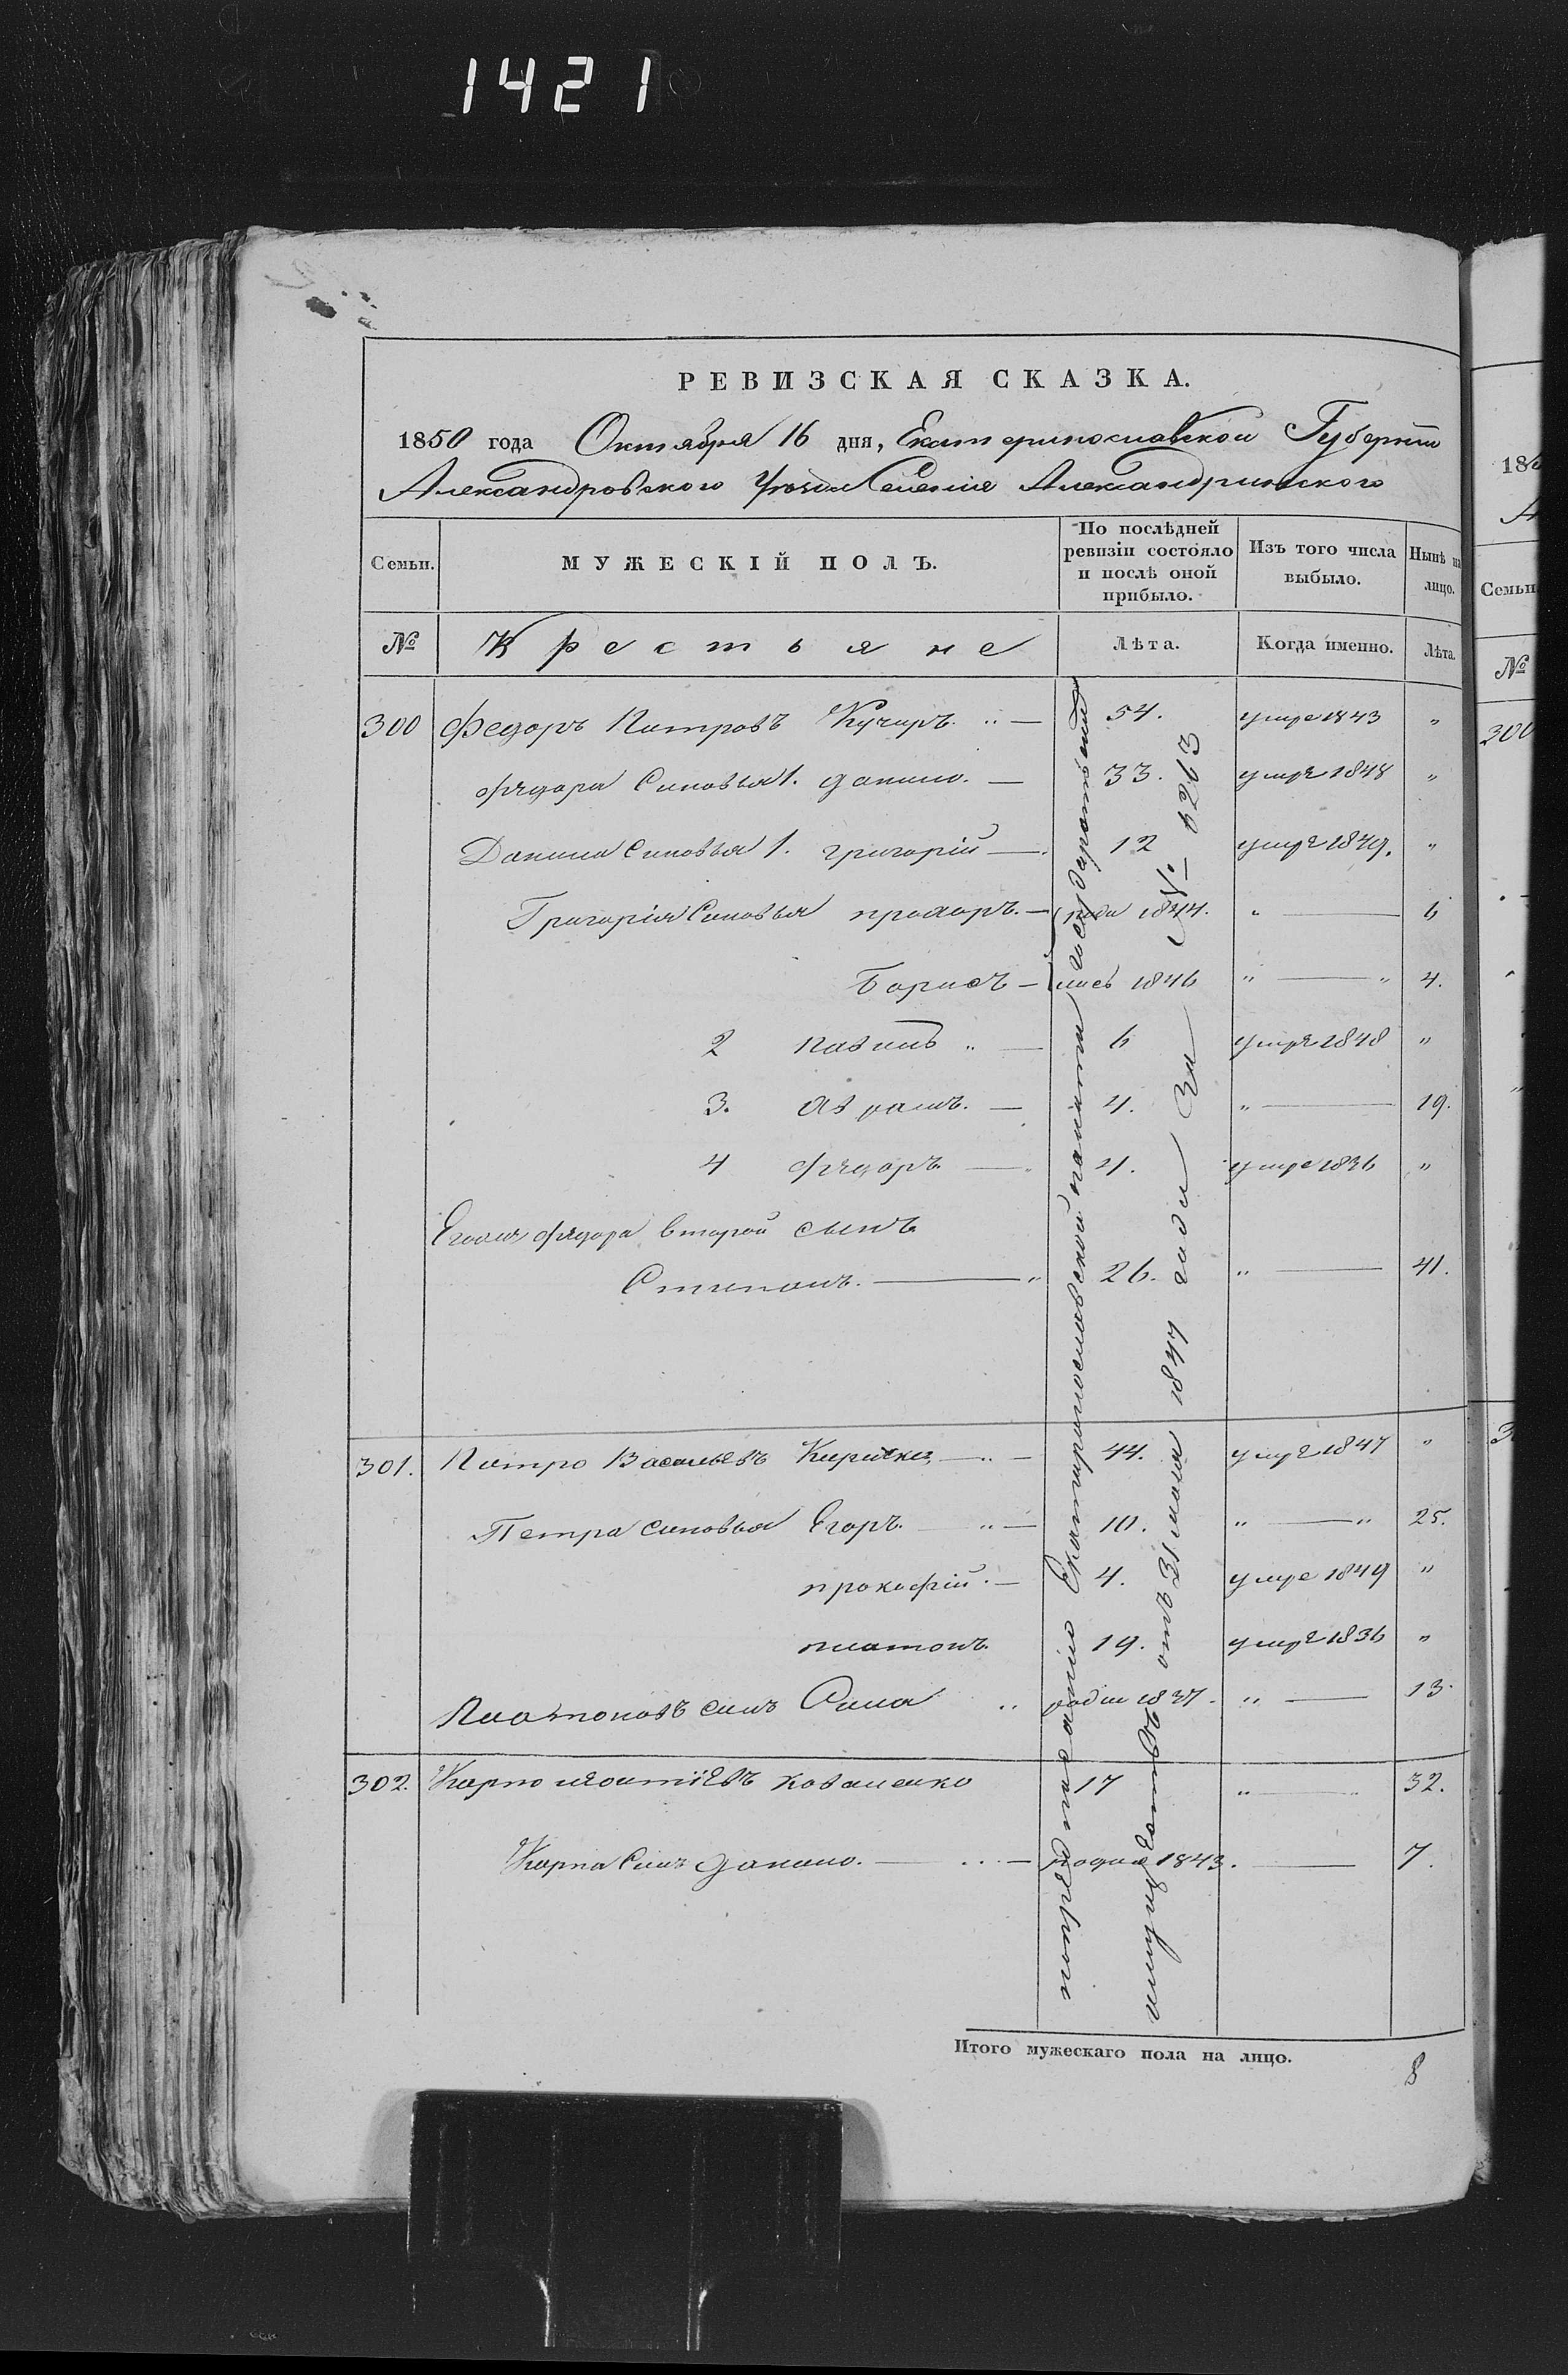 1421
РЕВИЗСКАЯ СКАЗКА.
1850 года Октября 16 дня, Екатеринославской Губерніи
Александровского Уѣзда Селенія Александринского
Семьи. МУЖЕСКІЙ ПОЛЪ. По послѣдней ревизіи состояло и послѣ оной прибыло. Изъ того числа выбыло. Нынѣ на лицо.
№ Крестьяне Лѣта. Когда именно. Лѣта.
300 Федоръ Петровъ Кучеръ. „ — 54. умре 1843 „
Федора Синовья 1. данило. — 33. умре 1848 „
Данила Синовья 1. григорій — 12 умре 1849. „
Григорія Синовья прохоръ. — роди 1844. „ — 6
Борисъ — лись 1846 „ — „ 4.
2 павилъ „ — 6 умре 1848 „
3. Аврамъ. — 4. „ — 19.
4 Федоръ — 4. умре 1836 „
Егожъ Федора второй сынъ
Степанъ. — „ 26. „ — 41.
301. Петро Васильевъ Киричекъ — „ — 44. умре 1847 „
Петра синовья Егоръ. — „ — 10. „ — „ 25.
прокофій. — 4. умре 1849 „
платонъ. 19. умре 1836 „
Платоновъ синъ Сила „ родил 1837. „ — 13.
302. Карпо коваленко 17 „ — 32.
Карпа Синъ данило. — родил 1843. — 7.
предписанію Екатеринославской палаты государственныхъ
имуществъ отъ 31 мая 1847 года За № 9213
Итого мужескаго пола на лицо. 8
185
А
Семьи
№
300
3